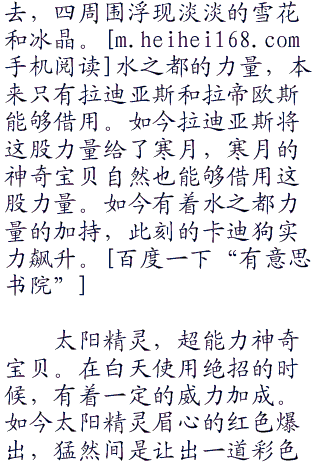 去，四周围浮现淡淡的雪花
和冰晶。[m.heihei168.com
手机阅读]水之都的力量，本
来只有拉迪亚斯和拉帝欧斯
能够借用。如今拉迪亚斯将
这股力量给了寒月，寒月的
神奇宝贝自然也能够借用这
股力量。如今有着水之都力
量的加持，此刻的卡迪狗实
力飙升。[百度一下“有意思
书院”]
太阳精灵，超能力神奇
宝贝。在白天使用绝招的时
候，有着一定的威力加成。
如今太阳精灵眉心的红色爆
出，猛然间是让出一道彩色